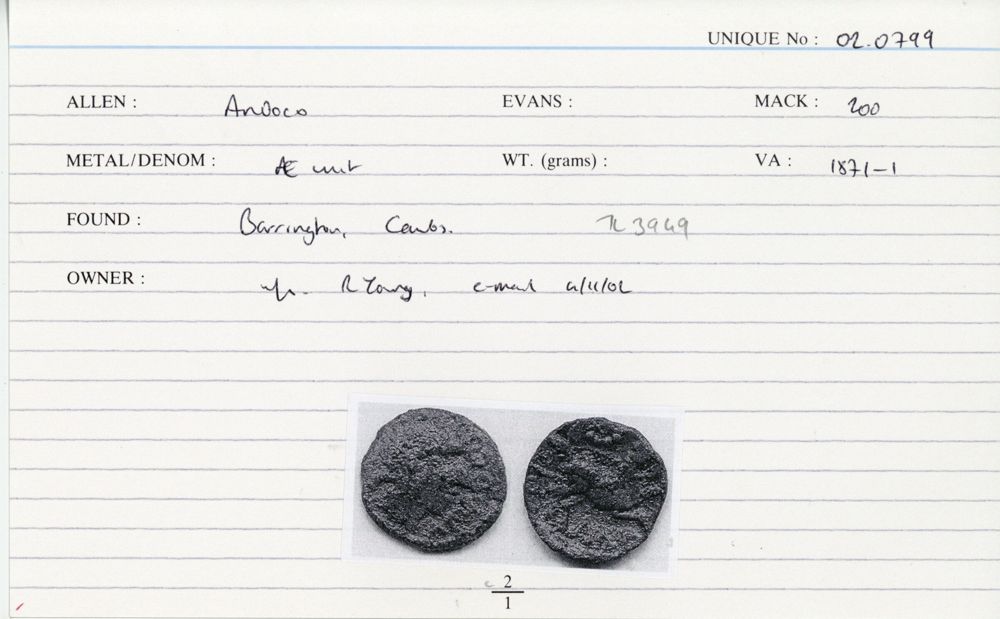 UNIQUE No : 02.0799
ALLEN : ANDOCO EVANS : MACK : 200
METAL/DENOM : Æ unit WT. (grams) : VA : 1871-1
FOUND : Barrington, Cambs. TL 3949
OWNER : R Young, e-mail
2
1